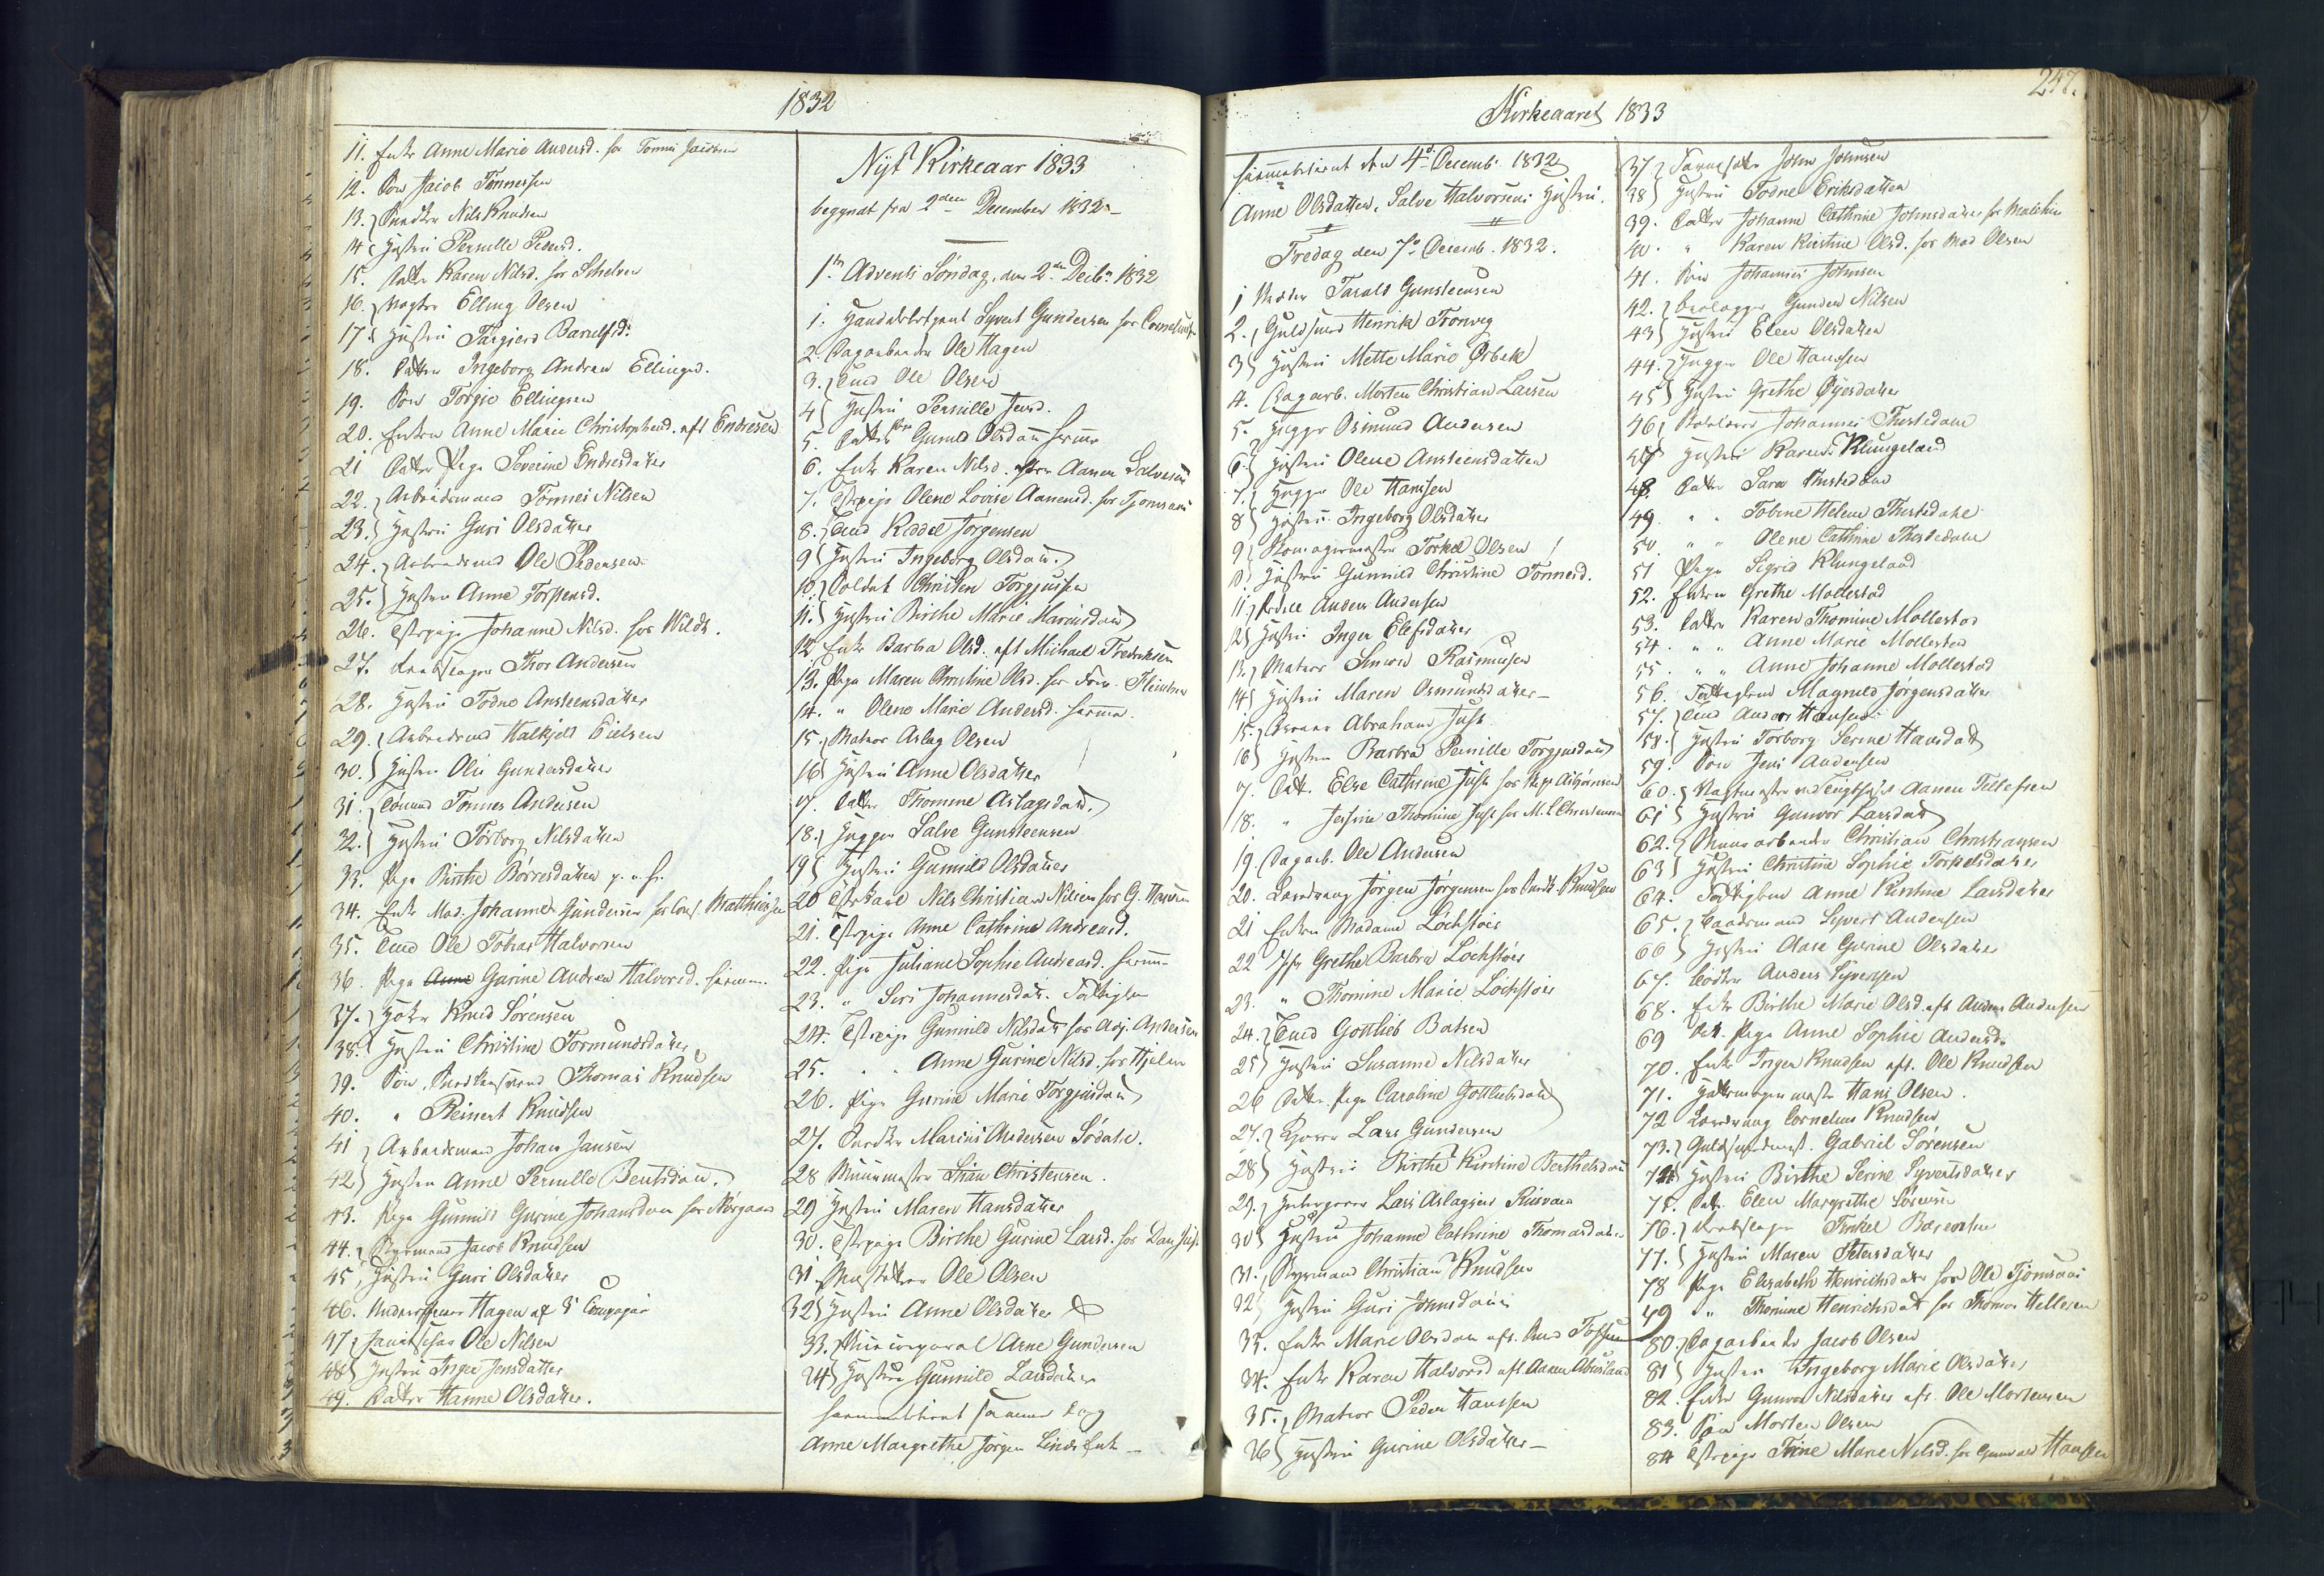 1832
11. Enke Anne Marie Andersd. for Tønnes Jacobsen
12. Søn Jacob Tønnessen
13. Snedker Nils Knudsen
14 Hustru Pernille Pedersd.
15. Datter Karen Nilsd. for Schelven
16. Vægter Elling Olsen
17. Hustru Targjerd Barulfsd.
18. Datter Ingeborg Andrea Ellingsd.
19. Søn Torgie Ellingsen
20. Enken Anne Marie Christophersd. eft Endresen
21 Datter Pige Severine Endresdatter
22. Arbeidsmand Tønnes Nilsen
23. Hustru Guri Olsdatter
24. Arbeidsmd Ole Pedersen
25. Hustru Anne Torstensd.
26. Tstpige Johanne Nilsd. for Wildt.
27. Rebslager Thor Andersen
28. Hustru Todne Ansteensdatter
29. Arbeidsmd Halkjeld Eielsen
30. Hustru Olie Gundersdatter
31. Tømmd Tønnes Andersen
32. Hustru Torborg Nilsdatter
33. Pige Birthe Børresdatter
34. Enke Mad. Johanne Gundersen for Cons. Matthiesen
35. Tmd Ole Tobias Halvorsen
36. Pige Anne Gurine Andrea Halvorsd. hjemme.
37. Knud Sørensen
38. Hustru Christine Tormundsdatter
39. Søn, Snedkersvend Thomas Knudsen
40. " Reinert Knudsen
41 Arbeidsmand Johan Jansen
42 Hustru Anne Pernille Bentsdatt.
43. Pige Gunnild Gurine Johansdatter for Nørgaard
44. Styrmand Jacob Knudsen
45 Hustru Guri Olsdatter
46. Hagen af 5 Compagnie
47 Ole Nilsen
48 Hustru Inger Jensdatter
49. Datter Hanne Olsdatter.
Nyt Kirkeaar 1833
begyndt fra 2den December 1832
1ste Advents Søndag, den 2den Decbr. 1832
1. Handelsbetjent Syvert Gundersen for Cornelius
2. Dagarbeider Ole Hagen
3. Tmd Ole Olsen
4 Hustru Pernille Jensd.
5. Datter Gunild Olsdatt hjemme
6. Enke Karen Nilsd. efter Aanen Salvesen
7. Tstpige Olene Lovise Aanensd. for Tjomsaas
8. Tmd Keddel Jørgensen
9 Hustru Ingeborg Olsdatt.
10. Soldat Christen Torgjusen
11. Hustru Birthe Marie Mariusdatt
12 Enke Barbra Olsd. eft Michael Fredriksen
13. Pige Maren Christine Olsd. for
14. " Olene Marie Andersd. hjemme.
15. Matros Aslag Olsen
16 Hustru Anne Olsdatter
17. Datter Thomine Aslagsdatt.
18. Hugger Salve Gunsteensen
19 Hustru Gunnild Olsdatter
20 Tstkarl Nils Christian Nilsen for G. Hansen
21. Tstpige Anne Cathrine Andreasd.
22. Pige Juliane Sophie Andreasd. hjemme
23. " Siri Johannesdatt. Fattiglem
24. Tstpige Gunnild Nilsdatt for Avj. Andersen
25. " Anne Gurine Nilsd. for Hjelm
26. Pige Gurine Marie Torgjusdatt
27. Snedker Marius Andersen Sødahl.
28 Muurmester Stian Christensen.
29 Hustru Maren Hansdatter
30. Tstpige Birthe Gurine Larsd. for Dan Just
31. Ole Olsen
32 Hustru Anne Olsdatter
33. Arne Gundersen
34 Hustru Gunnild Larsdatter
hjemmebetient samme Dag
Anne Margrethe Jørgen Linds Enke
247.
Kirkeaaret 1833
hjemmebetient den 4de Decemb. 1832
Anne Olsdatter, Salve Halvorsens Hustru.
Fredag den 7de Decemb. 1832.
1 Tarald Gunsteensen
2. Guldsmed Henrik Tronvig
3 Hustru Mette Marie Ørbek
4. Dagarb. Morten Christian Larsen
5. Hugger Osmund Andersen
6. Hustru Olene Ansteensdatter
7. Hugger Ole Hansen
8 Hustru Ingeborg Olsdatter
9 Skomagermester Torkel Olsen
10. Hustru Gunnild Christine Tønnesd.
11. Anders Andersen
12 Hustru Inger Elefsdatter
13. Matros Simon Rasmusen
14 Hustru Maren Osmundsdatter
15. Abraham Just
16 Hustru Barbra Pernille Torgjusdatt
17. Datt. Else Cathrine Just for Skpr Asbjørnsen
18. " Jensine Thomine Just for M. L. Christensen
19. Dagarb. Ole Andersen
20. Læredreng Jørgen Jørgensen for Snedk. Knudsen
21 Enken Madame Lochstøer
22 Jfr Grethe Barbra Lochstøer
23. " Thomine Marie Lochstøer
24. Tmd Gottlieb Batsen
25 Hustru Susanne Nilsdatter
26 Datter Pige Caroline Gottliebsdatt
27. Lars Gundersen
28 Hustru Birthe Kirstine Berthelsdatt
29. Lars Aslagsen Risvand
30 Hustru Johanne Cathrine Thomasdatter
31. Styrmand Christian Knudsen
32 Hustru Guri Jensdatter
33. Enke Marie Olsdatt eft.
34. Enke Karen Halvorsd eft. Aanen Abusland
35. Matros Peder Hanssen
36 Hustru Gurine Olsdatter
37. John Johnsen
38 Hustru Todne Eriksdatter
39. Datter Johanne Cathrine Johnsdatter for
40. " Karen Kirstine Olsd. for Mad Olsen
41. Søn Johannes Johnsen
42. Gunder Nilsen
43 Hustru Elen Olsdatter
44. Hugger Ole Hanssen
45 Hustru Grethe Øjesdatter
46 Johannes Thistedahl
47 Hustru Karen Klungeland
48. Datter Sara Thistedahl
49. " " Tobine Helene Thistedahl
50. " " Olene Cathrine Thistedahl
51 Pige Sigrid Klungeland
52. Enken Grethe Mollestad
53. Datter Karen Thomine Mollestad
54. " " Anne Marie Mollestad
55. " " Anne Johanne Mollestad
56. Fattiglem Magnild Jørgensdatter
57. Tmd Anders Hansen
58. Hustru Torborg Serine Hansdatt
59. Søn Jens Andersen
60. Vagtmester ved Tugthuset Aanen Tellefsen
61 Hustru Gunvor Larsdatt
62. Muurarbeider Christian Christiansen
63 Hustru Christine Sophie Torkelsdatter
64. Fattiglem Anne Kirstine Larsdatter
65. Baadsmand Syvert Andersen
66 Hustru Aase Gurine Olsdatter
67. Bødker Anders Syvertsen
68. Enke Birthe Marie Olsd. eft Anders Andersen
69 Datt. Pige Anne Sophie Andersd.
70. Enke Inger Knudsen eft. Ole Knudsen
71. Hattemagermester Hans Olsen.
72 Læredreng Cornelius Knudsen
73. Guldsmedmest. Gabriel Sørensen
74 Hustru Birthe Serine Syvertsdatter
75. Datt. Elen Margrethe Sørensen
76. Rebslager Terkel Barentsen
77. Hustru Maren Petersdatter
78 Pige Elisabeth Henrichsdatt for Ole Tjomsaas
79 " Thomine Henrichsdatt for Thomas Hellesen
80. Dagarbeider Jacob Olsen
81 Hustru Ingeborg Marie Olsdatter
82. Enke Gunvor Nilsdatter eft. Ole Mortensen
83. Søn Morten Olsen
84 Tstpige Trine Marie Nilsd. for Gunvald Hanssen